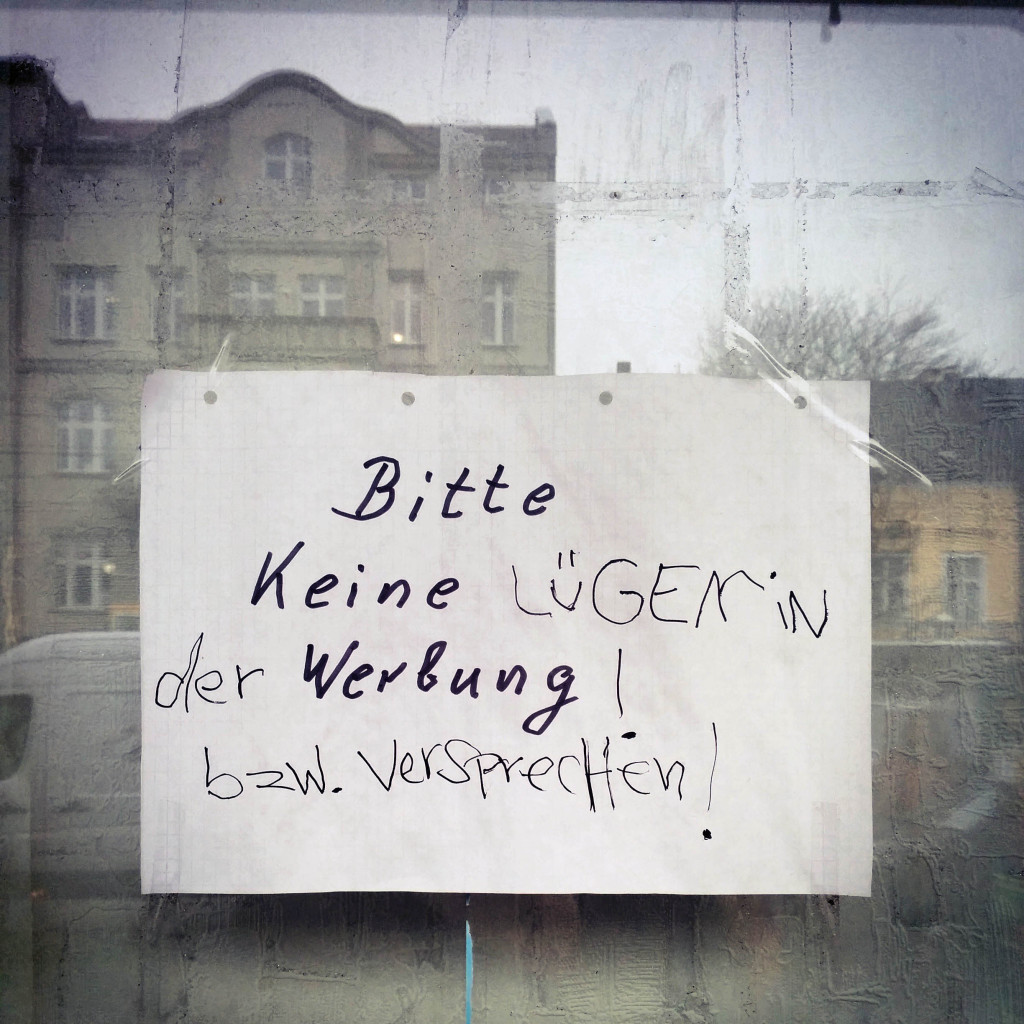 Bitte
Keine LÜGEN in
der Werbung!
bzw. Versprechen!